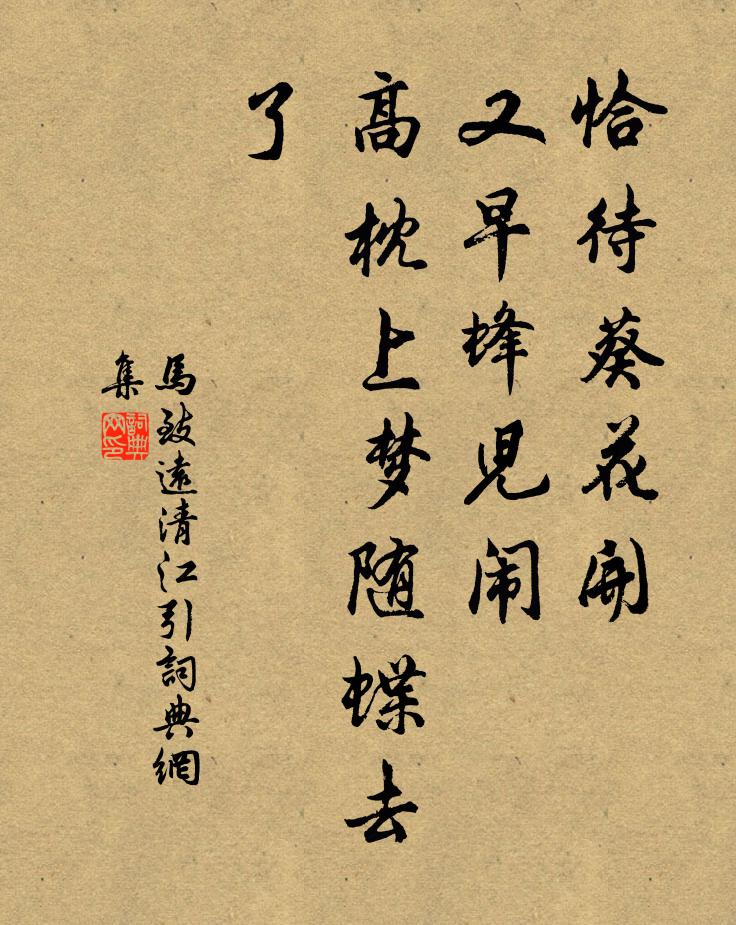 恰待葵花開
又早蜂児闹
高枕上梦随蝶去
了
馬致遠清江引詞典網
集
詞典
网印